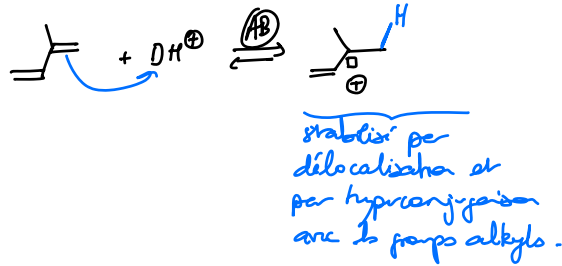 + DH⊕ AB H
⊕
stabilisé par
délocalisation et
par hyperconjugaison
avec les groups alkyls.